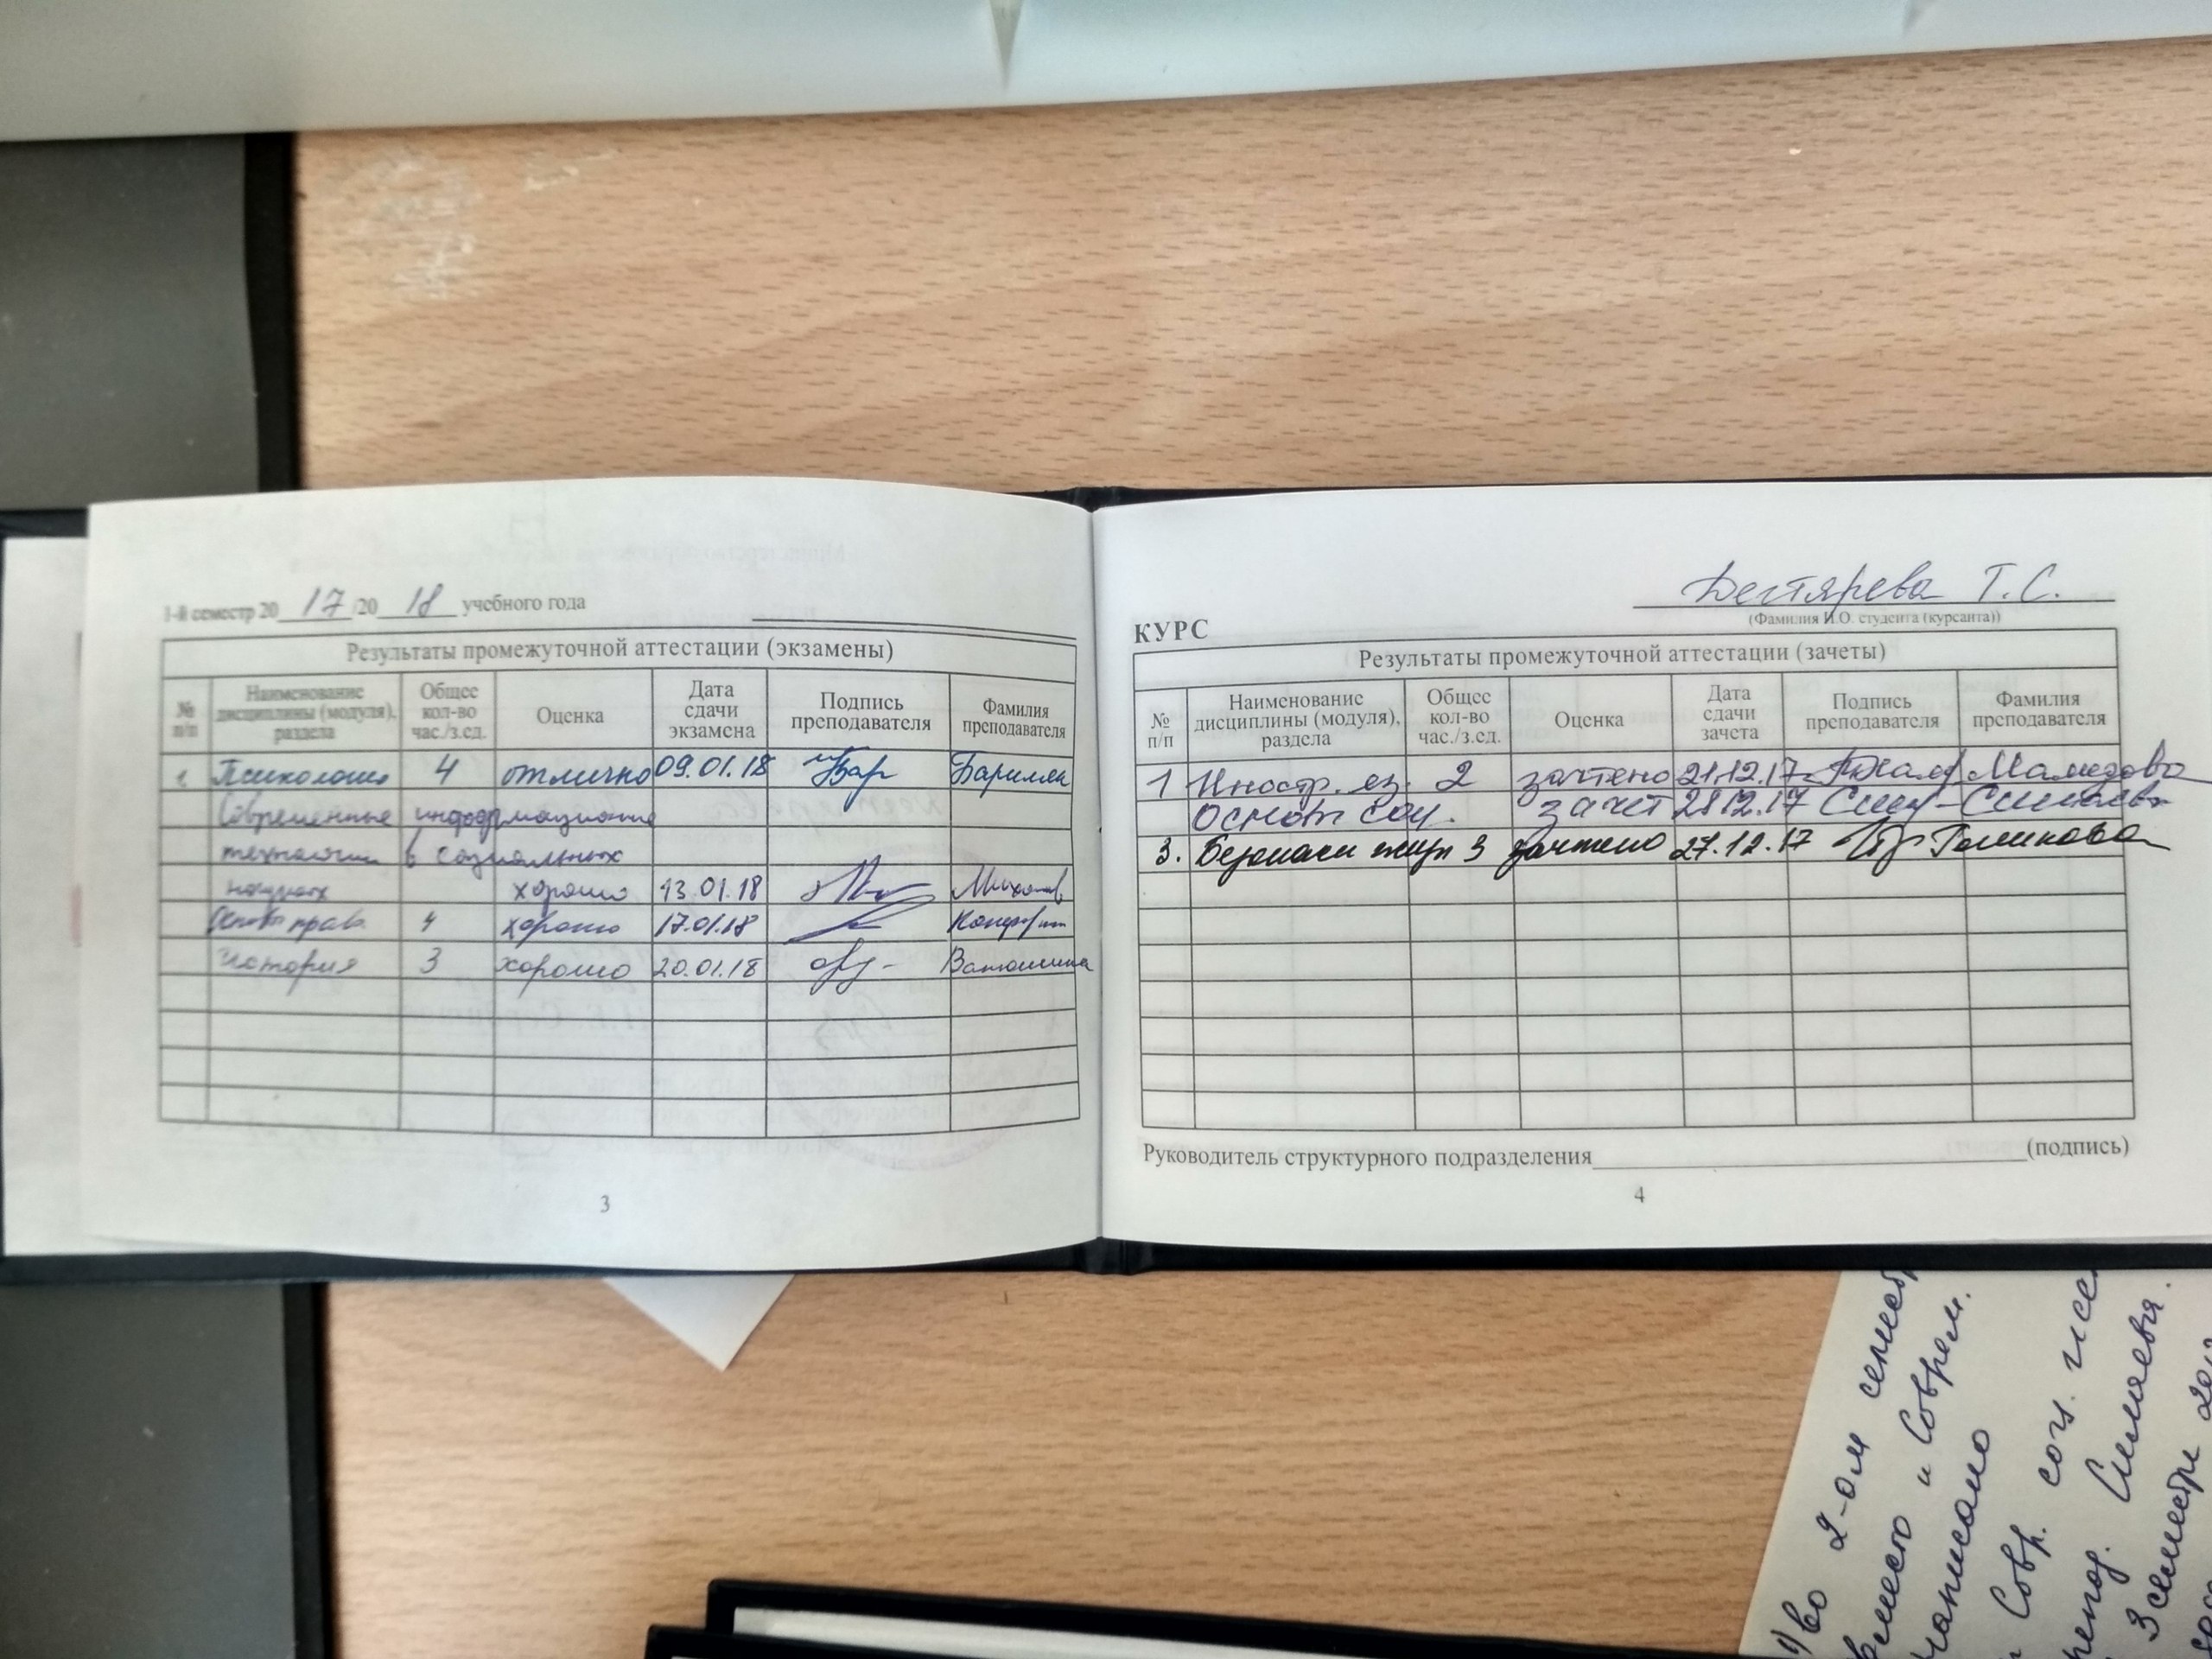 1-й семестр 20 17 /20 18 учебного года
Результаты промежуточной аттестации (экзамены)
№ п/п Наименование дисциплины (модуля), раздела Общее кол-во час./з.ед. Оценка Дата сдачи экзамена Подпись преподавателя Фамилия преподавателя
1. Психология 4 отлично 09.01.18 Бар
Современные информационные
технологии в социальных
науках хорошо 13.01.18
Основы права 4 хорошо 17.01.18
История 3 хорошо 20.01.18
3
Дегтярева Т.С.
(Фамилия И.О. студента (курсанта))
КУРС
Результаты промежуточной аттестации (зачеты)
№ п/п Наименование дисциплины (модуля), раздела Общее кол-во час./з.ед. Оценка Дата сдачи зачета Подпись преподавателя Фамилия преподавателя
1 Иностр. яз. 2 зачтено 21.12.17 Мамедова
Основы соц. зачет 28.12.17
3. 3 зачтено 27.12.17 Голикова
Руководитель структурного подразделения (подпись)
4
1) во 2-ом семестр
и Соврем.
написано
Совр. соц.
Симаева.
3 семестр